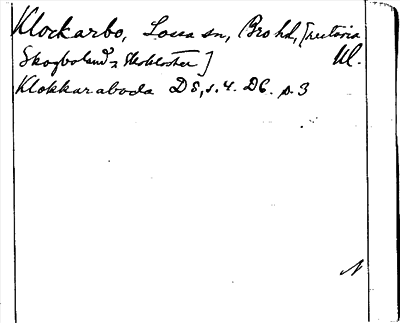 Klockarbo, Lossa sn, Bro hd, [rectoria
Skogboland & Skokloster] Ul.
Klokkaraboda D 5, s. 4. D6. s. 3
N